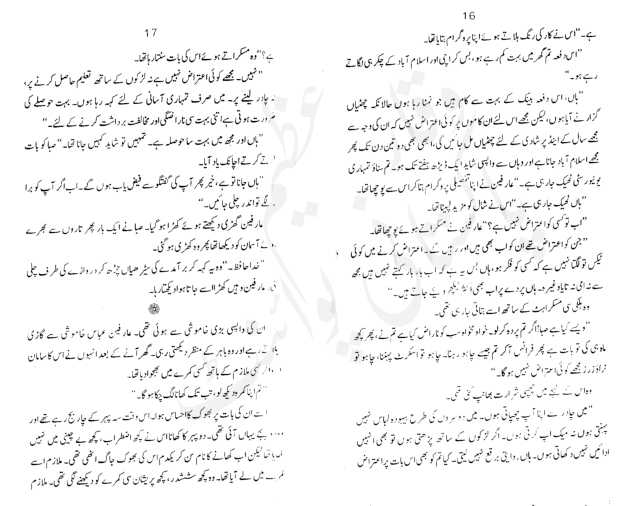 16
ہے۔" اس نے کار کی رنگ ہلاتے ہوئے اپنا پروگرام بتایا تھا۔
"اس دفعہ تم گھر میں بہت کم رہے ہو، بس کراچی اور اسلام آباد کے چکر ہی لگاتے
رہے ہو۔"
"ہاں، اس دفعہ بینک کے بہت سے کام ہیں جو نمٹا رہا ہوں حالانکہ چھٹیاں
گزارنے آیا ہوں، لیکن مجھے اس لئے ان کاموں پر کوئی اعتراض نہیں کہ ان کی وجہ سے
مجھے سال کے اینڈ پر شادی کے لئے چھٹیاں مل جائیں گی، ابھی بھی دو تین دن تک پھر
مجھے اسلام آباد جانا ہے اور وہاں سے واپسی شاید ایک ڈیڑھ ہفتے تک ہو۔ تم سناؤ تمہاری
یونیورسٹی ٹھیک جا رہی ہے۔" عارفین نے اپنا تفصیلی پروگرام بتا کر اس سے پوچھا تھا۔
"ہاں ٹھیک جا رہی ہے۔" اس نے شال کو مزید لپیٹا تھا۔
"اب تو کسی کو اعتراض نہیں ہے؟" عارفین نے مسکراتے ہوئے پوچھا تھا۔
"جن کو اعتراض تھے ان کو اب بھی ہیں اور رہیں گے۔ اعتراض کرنے میں کوئی
ٹیکس تو لگتا نہیں ہے کہ کسی کو فکر ہو، ہاں بس یہ ہے کہ اب بار بار کہتے نہیں ہیں مجھ
سے نہ امی نہ تایا وغیرہ۔ ہاں پردے پر اب بھی دیے جاتے ہیں۔"
وہ ہلکی سی مسکراہٹ کے ساتھ اسے بتاتی جا رہی تھی۔
"ویسے کیا ہے صبا! اگر تم پردہ کر لو۔ خوامخواہ سب کو ناراض کیا ہے تم نے، پھر کچھ
ماہ ہی کی تو بات ہے پھر فرانس آ کر تم جیسے چاہو رہنا۔ چاہو تو اسکرٹ پہننا، چاہو تو
ٹراؤزرز مجھے کوئی اعتراض نہیں ہو گا۔"
وہ اس کے لہجے میں چھپی شرارت بھانپ گئی تھی۔
"میں چادر سے اپنا آپ چھپاتی ہوں۔ میں، دوسروں کی طرح بیہودہ لباس نہیں
پہنتی ہوں نہ میک اپ کرتی ہوں۔ اگر لڑکوں کے ساتھ پڑھتی ہوں تو بھی انہیں
ادائیں نہیں دکھاتی ہوں۔ ہاں، روایتی برقع نہیں لیتی۔ کیا تم کو بھی اس بات پر اعتراض
17
ہے؟" وہ مسکراتے ہوئے اس کی بات سنتا رہا تھا۔
"نہیں۔ مجھے کوئی اعتراض نہیں ہے نہ لڑکوں کے ساتھ تعلیم حاصل کرنے پر،
چادر لینے پر۔ میں صرف تمہاری آسانی کے لئے کہہ رہا ہوں۔ بہت حوصلے کی
ضرورت ہوتی ہے اتنی بہت سی ناراضگی اور مخالفت برداشت کرنے کے لئے۔"
"ہاں اور مجھ میں بہت سا حوصلہ ہے۔ تمہیں تو شاید کہیں جانا تھا۔" صبا کو بات
کرتے کرتے اچانک یاد آیا۔
"ہاں جانا تو ہے، خیر پھر آپ کی گفتگو سے فیض یاب ہوں گے۔ اب اگر آپ کو برا
نہ لگے تو اندر چلی جائیں۔"
عارفین گھڑی دیکھتے ہوئے کھڑا ہو گیا۔ صبا نے ایک بار پھر تاروں سے بھرے
ہوئے آسمان کو دیکھا تھا پھر وہ کھڑی ہو گئی۔
"خدا حافظ۔" وہ یہ کہہ کر برآمدے کی سیڑھیاں چڑھ کر دروازے کی طرف چلی
عارفین وہیں کھڑا اسے جاتا ہوا دیکھتا رہا۔
ان کی واپسی بڑی خاموشی سے ہوئی تھی۔ عارفین عباس خاموشی سے گاڑی
چلاتے رہے اور وہ باہر کے منظر دیکھتی رہی۔ گھر آنے کے بعد انہوں نے اس کا سامان
اور کسی ملازم کے ہاتھ کسی کمرے میں بھجوا دیا تھا۔
"تم اپنا کمرہ دیکھ لو، تب تک کھانا لگ چکا ہو گا۔"
ان کی بات پر بھوک کا احساس ہوا۔ اس وقت سہ پہر کے چار بج رہے تھے اور
بجے یہاں آئی تھی۔ دوپہر کا کھانا اس نے کچھ اضطراب، کچھ بے چینی میں نہیں
کھایا تھا لیکن اب کھانے کا نام سن کر یکدم اس کی بھوک جاگ اٹھی تھی۔ ملازم اسے
کمرے میں لے آیا تھا۔ کچھ ششدر، کچھ پریشان سی کمرے کو دیکھنے لگی تھی۔ ملازم